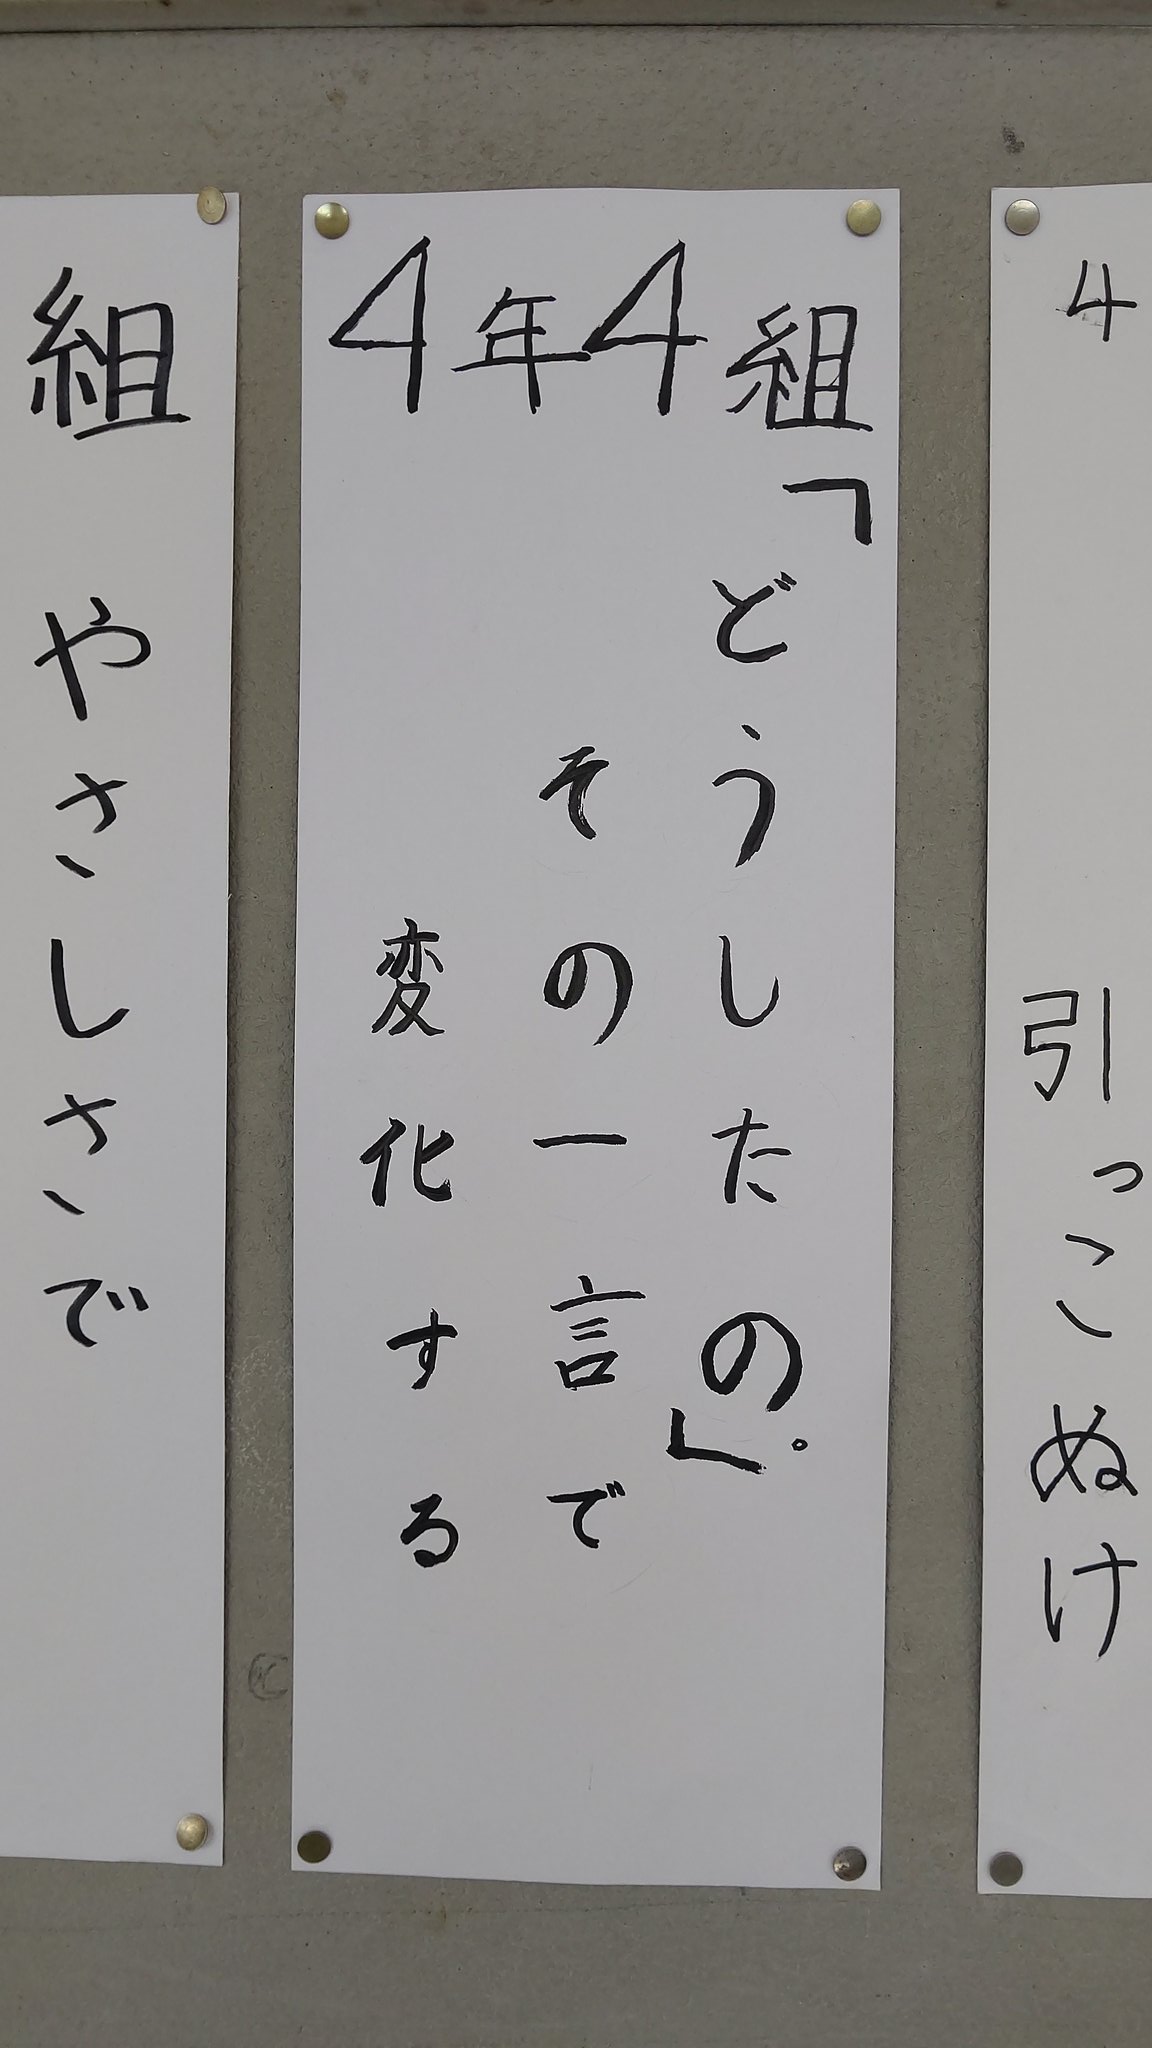 4
引っこぬけ
4年4組
「どうしたの。」
その一言で
変化する
組
やさしさで